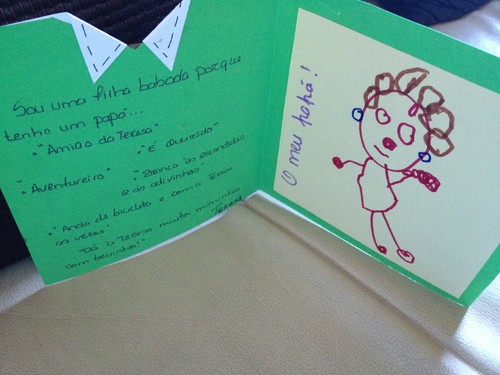 Sou uma filha babada porque
tenho um papá...
• "Amigo da Teresa"
• "É Querido"
• Aventureiro"
• "Brinca às escondidas
e às adivinhas"
• Anda de bicicleta e com a Teresa
às vezes"
• "Dá à Teresa muitos miminhos
com beijinhos!"
Teresa
O meu papá!